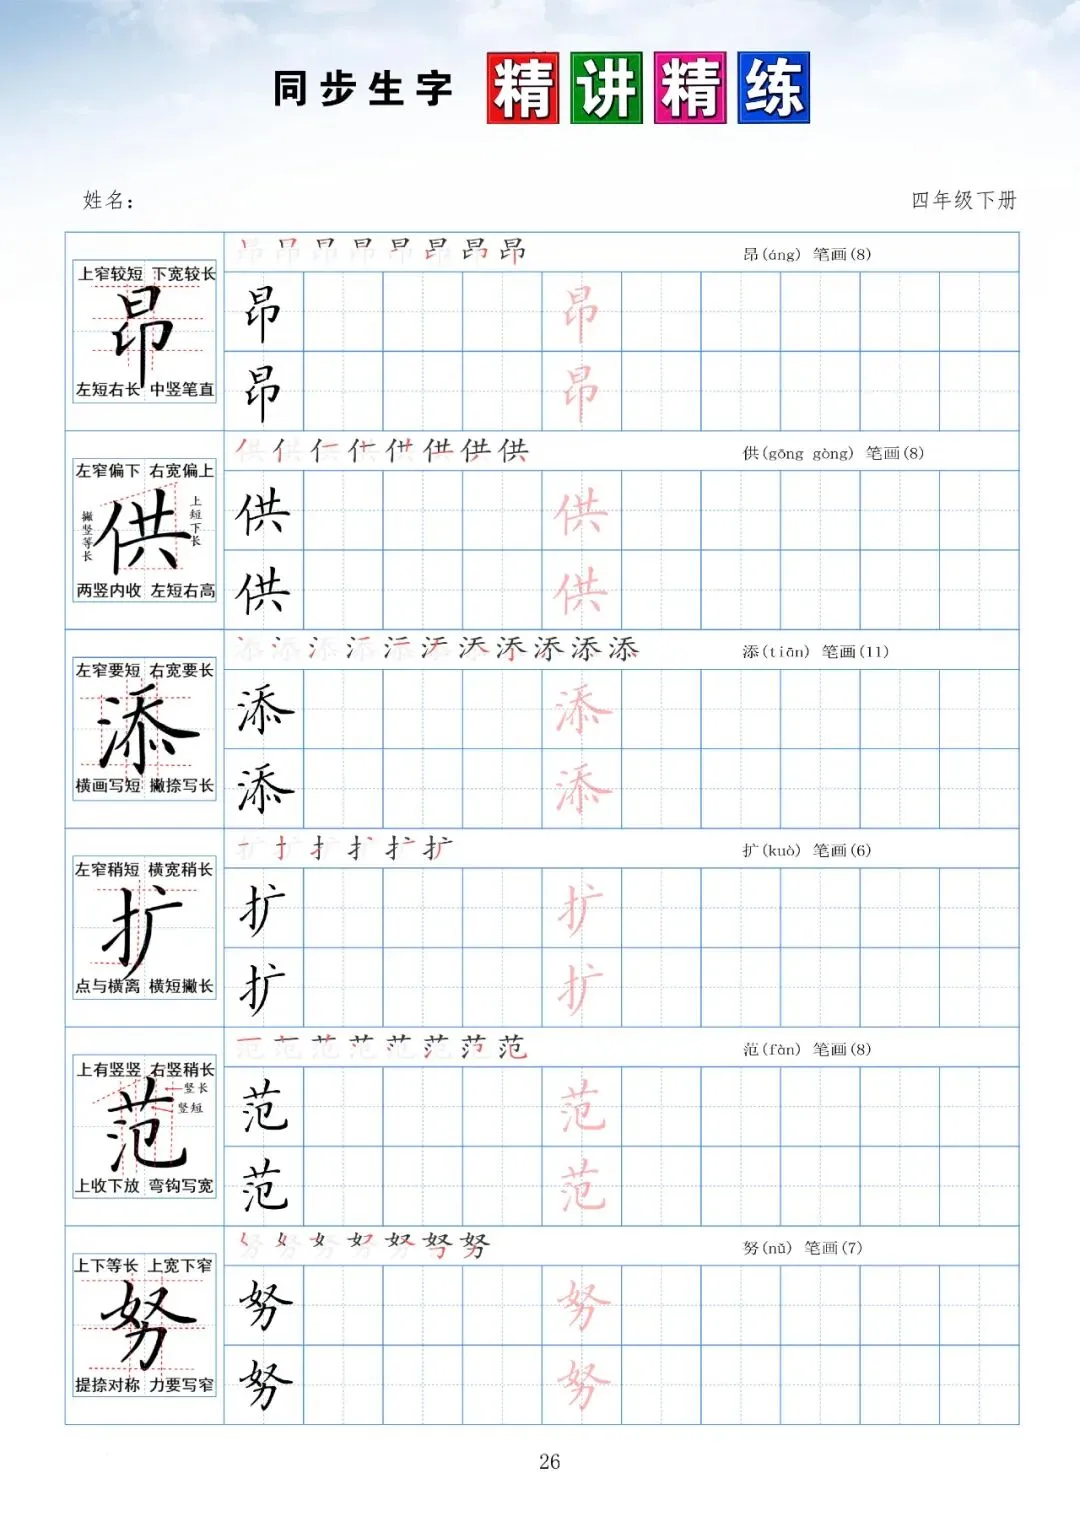 同步生字 精讲精练
姓名：
四年级下册
上窄较短 下宽较长
昂
左短右长 中竖笔直
昂(áng) 笔画(8)
昂 昂
昂 昂
左窄偏下 右宽偏上
撇竖等长
供
上短下长
两竖内收 左短右高
供(gōng gòng) 笔画(8)
供 供
供 供
左窄要短 右宽要长
添
横画写短 撇捺写长
添(tiān) 笔画(11)
添 添
添 添
左窄稍短 横宽稍长
扩
点与横离 横短撇长
扩(kuò) 笔画(6)
扩 扩
扩 扩
上有竖竖 右竖稍长
竖长
竖短
范
上收下放 弯钩写宽
范(fàn) 笔画(8)
范 范
范 范
上下等长 上宽下窄
努
提捺对称 力要写窄
努(nǔ) 笔画(7)
努 努
努 努
26